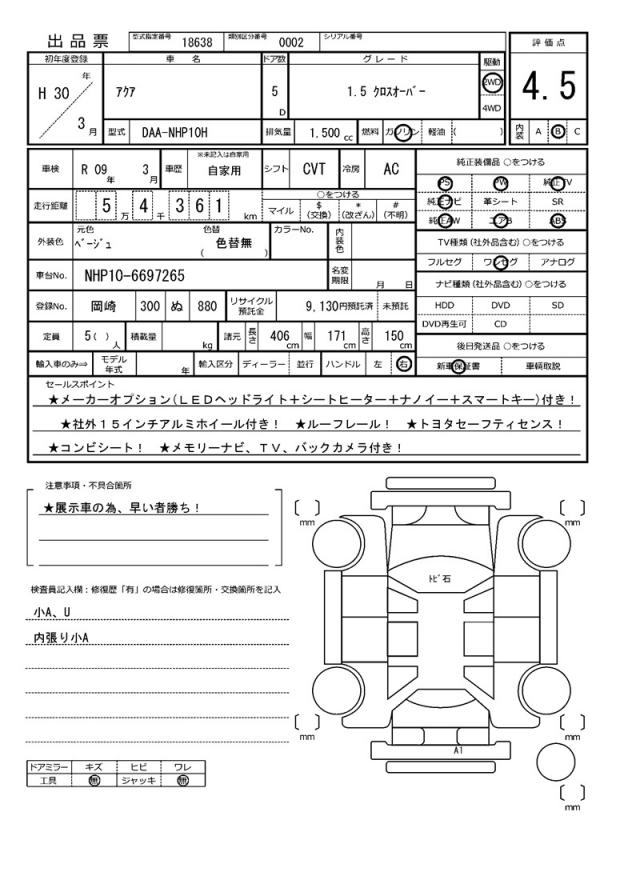 出品票 型式指定番号 18638 類別区分番号 0002 シリアル番号
初年度登録 車名 ドア数 グレード 駆動 評価点
H 30 年 3 月 アクア 5 D 1.5 クロスオーバー 2WD 4WD 4.5
型式 DAA-NHP10H 排気量 1.500 cc 燃料 ガソリン 軽油 ( ) 内装 A B C
車検 R 09 年 3 月 車歴 ※未記入は自家用 自家用 シフト CVT 冷房 AC
走行距離 5 万 4 千 3 6 1 km ○をつける マイル $(交換) *(改ざん) #(不明)
外装色 元色 ベージュ 色替 色替無 ( ) カラーNo. 内装色
車台No. NHP10-6697265 名変期限 月 日
登録No. 岡崎 300 ぬ 880 リサイクル預託金 9,130円預託済 未預託
定員 5( ) 人 積載量 kg 諸元 長さ 406 cm 幅 171 cm 高さ 150 cm
輸入車のみ⇒ モデル年式 年 輸入区分 ディーラー 並行 ハンドル 左 右
純正装備品 ○をつける
PS PW 純正TV
純正ナビ 革シート SR
純正AW エアB ABS
TV種類(社外品含む)○をつける
フルセグ ワンセグ アナログ
ナビ種類(社外品含む)○をつける
HDD DVD SD
DVD再生可 CD
後日発送品 ○をつける
新車保証書 車輌取説
セールスポイント
★メーカーオプション(LEDヘッドライト+シートヒーター+ナノイー+スマートキー)付き!
★社外15インチアルミホイール付き! ★ルーフレール! ★トヨタセーフティセンス!
★コンビシート! ★メモリーナビ、TV、バックカメラ付き!
注意事項・不具合箇所
★展示車の為、早い者勝ち!
検査員記入欄:修復歴「有」の場合は修復箇所・交換箇所を記入
小A、U
内張り小A
ドアミラー キズ ヒビ ワレ
工具 無 ジャッキ 無
[ ] mm [ ] mm
トビ石
[ ] mm [ ] mm
A1
[ ] mm